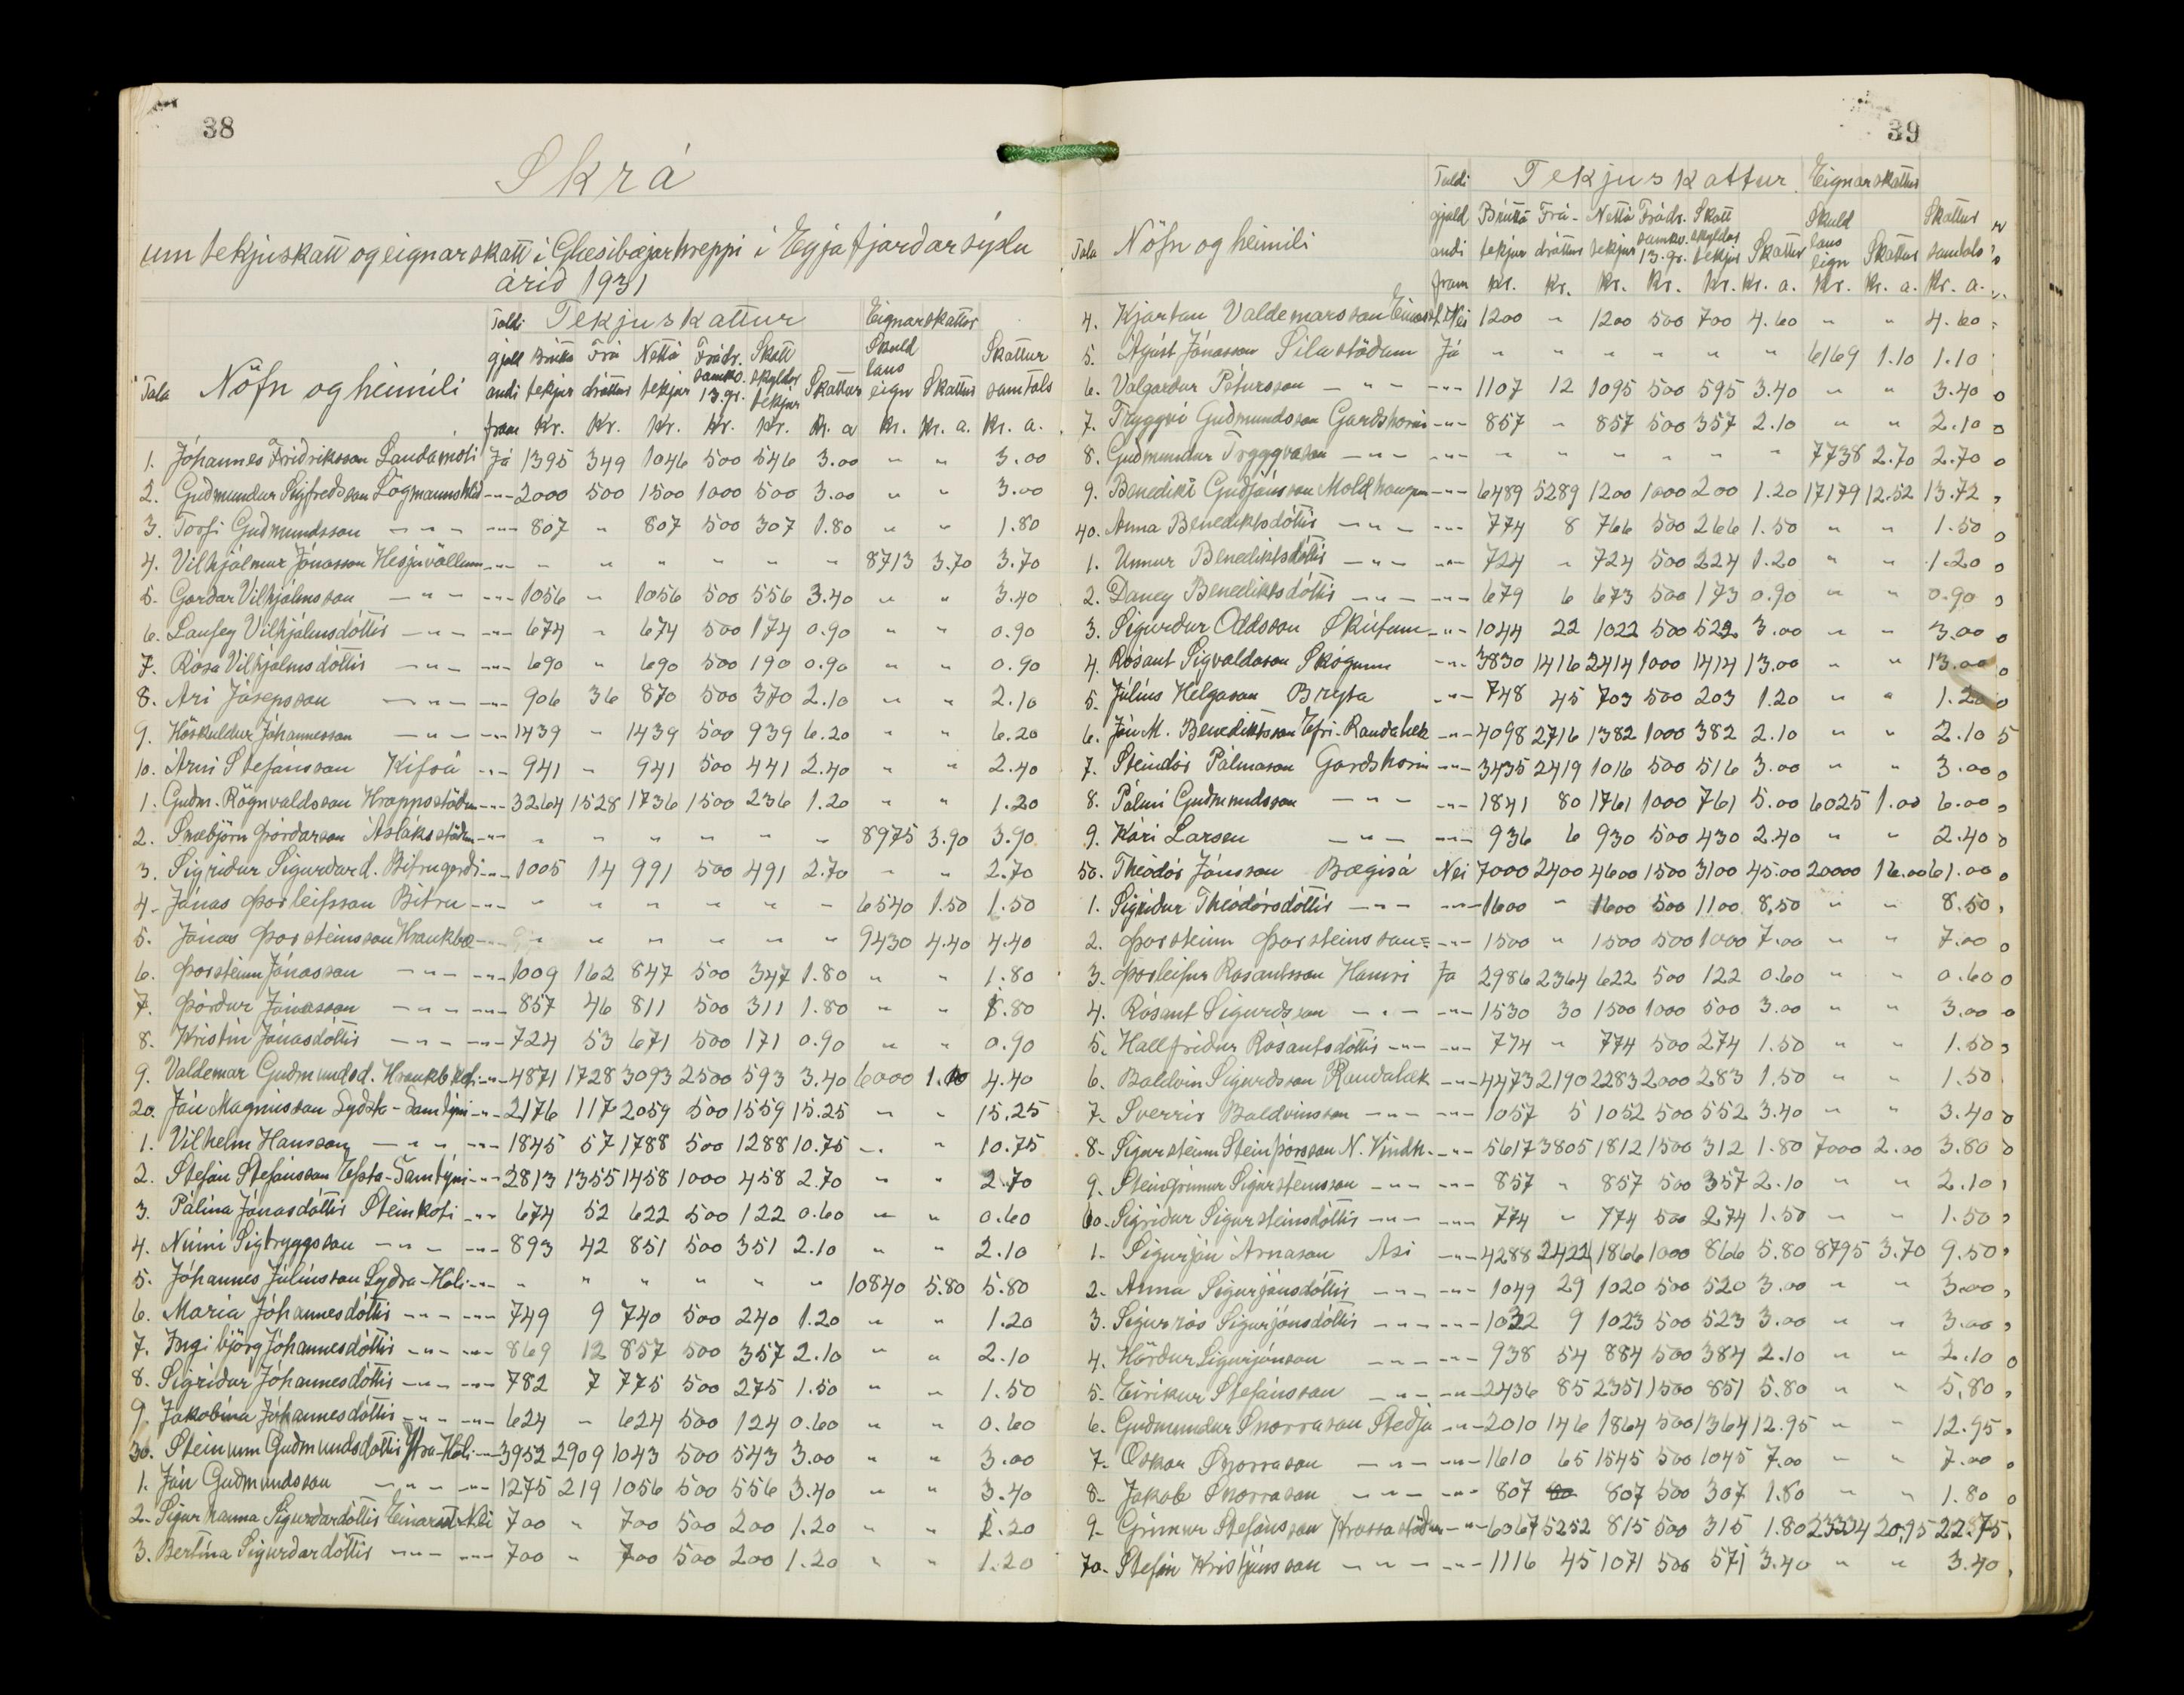 38
Skrá
um tekjuskatt og eignarskatt í Glæsibæjarhreppi í Eyjafjarðarsýslu
árið 1931
Taldi Tekjuskattur Eignarskattur
gjald Brúttó Frá Nettó Frádr. Skatt Skuld Skattur
Tala Nöfn og heimili andi tekjur dráttur tekjur samkv. 13.gr. skyldar tekjur Skattur laus eign Skattur samtals
fram Kr. Kr. Kr. Kr. Kr. Kr. a Kr. Kr. a. Kr. a.
1. Jóhannes Friðriksson Sandamóti Já 1395 349 1046 500 546 3.00 " " 3.00
2. Guðmundur Sigfredsson Lögmannshlíð -"- 2000 500 1500 1000 500 3.00 " " 3.00
3. Torfi Guðmundsson -"- -"- 807 " 807 500 307 1.80 " " 1.80
4. Vilhjálmur Jónasson Hesjuvöllum -"- " " " " " " 8713 3.70 3.70
5. Garðar Vilhjálmsson -"- -"- 1056 " 1056 500 556 3.40 " " 3.40
6. Laufey Vilhjálmsdóttir -"- -"- 674 " 674 500 174 0.90 " " 0.90
7. Rósa Vilhjálmsdóttir -"- -"- 690 " 690 500 190 0.90 " " 0.90
8. Ari Jósepsson -"- -"- 906 36 870 500 370 2.10 " " 2.10
9. Höskuldur Jóhannesson -"- -"- 1439 " 1439 500 939 6.20 " " 6.20
10. Árni Stefánsson Kífsá -"- 941 " 941 500 441 2.40 " " 2.40
1. Guðm. Rögnvaldsson Hrappsstöðum -"- 3264 1528 1736 1500 236 1.20 " " 1.20
2. Snæbjörn Þórðarson Ásláksstöðum -"- " " " " " " 8975 3.90 3.90
3. Sigríður Sigurðard. Bitrugerði -"- 1005 14 991 500 491 2.70 " " 2.70
4. Jónas Þorleifsson Bitru -"- " " " " " " 6540 1.50 1.50
5. Jónas Þorsteinsson Kraukbæ -"- " " " " " " 9430 4.40 4.40
6. Þorsteinn Jónasson -"- -"- 1009 162 847 500 347 1.80 " " 1.80
7. Þórður Jónasson -"- -"- 857 46 811 500 311 1.80 " " 1.80
8. Kristín Jónasdóttir -"- -"- 724 53 671 500 171 0.90 " " 0.90
9. Valdemar Guðmundss. Kraukb.koti -"- 4871 1728 3093 2500 593 3.40 6000 1.00 4.40
20. Jón Magnússon Syðsta-Samtýni -"- 2176 117 2059 500 1559 15.25 " " 15.25
1. Vilhelm Hansson -"- -"- 1845 57 1788 500 1288 10.75 " " 10.75
2. Stefán Stefánsson Efsta-Samtýni -"- 2813 1355 1458 1000 458 2.70 " " 2.70
3. Pálína Jónasdóttir Steinkoti -"- 674 52 622 500 122 0.60 " " 0.60
4. Númi Sigtryggsson -"- -"- 893 42 851 500 351 2.10 " " 2.10
5. Jóhannes Júlíusson Syðra-Hóli -"- " " " " " " 10840 5.80 5.80
6. María Jóhannesdóttir -"- -"- 749 9 740 500 240 1.20 " " 1.20
7. Ingibjörg Jóhannesdóttir -"- -"- 869 12 857 500 357 2.10 " " 2.10
8. Sigríður Jóhannesdóttir -"- -"- 782 7 775 500 275 1.50 " " 1.50
9. Jakobína Jóhannesdóttir -"- -"- 624 " 624 500 124 0.60 " " 0.60
30. Steinunn Guðmundsdóttir Ytra-Hóli -"- 3952 2909 1043 500 543 3.00 " " 3.00
1. Jón Guðmundsson -"- -"- 1275 219 1056 500 556 3.40 " " 3.40
2. Sigurhanna Sigurðardóttir Einarsst. Nei 700 " 700 500 200 1.20 " " 1.20
3. Bertína Sigurðardóttir -"- -"- 700 " 700 500 200 1.20 " " 1.20
39
Taldi Tekjuskattur Eignarskattur
gjald Brúttó Frá- Nettó Frádr. Skatt Skuld Skattur
Tala Nöfn og heimili andi tekjur dráttur tekjur samkv. 13.gr. skyldar tekjur Skattur laus eign Skattur samtals
fram Kr. Kr. Kr. Kr. Kr. Kr. a. Kr. Kr. a. Kr. a.
4. Kjartan Valdemarsson Einarsst. Nei 1200 " 1200 500 700 4.60 " " 4.60
5. Ágúst Jónasson Sílastöðum Já " " " " " " 6169 1.10 1.10
6. Valgarður Pétursson -"- -"- 1107 12 1095 500 595 3.40 " " 3.40
7. Tryggvi Guðmundsson Garðshorni -"- 857 " 857 500 357 2.10 " " 2.10
8. Guðmundur Tryggvason -"- -"- " " " " " " 7738 2.70 2.70
9. Benedikt Guðjónsson Moldhaugum -"- 6489 5289 1200 1000 200 1.20 17179 12.52 13.72
40. Anna Benediktsdóttir -"- -"- 774 8 766 500 266 1.50 " " 1.50
1. Unnur Benediktsdóttir -"- -"- 724 " 724 500 224 1.20 " " 1.20
2. Daney Benediktsdóttir -"- -"- 679 6 673 500 173 0.90 " " 0.90
3. Sigurður Oddsson Skútum -"- 1044 22 1022 500 522 3.00 " " 3.00
4. Rósant Sigvaldason Skógum -"- 3830 1416 2414 1000 1414 13.00 " " 13.00
5. Júlíus Helgason Bryta -"- 748 45 703 500 203 1.20 " " 1.20
6. Jón M. Benediktsson Efri-Rauðalæk -"- 4098 2716 1382 1000 382 2.10 " " 2.10
7. Steindór Pálmason Garðshorni -"- 3435 2419 1016 500 516 3.00 " " 3.00
8. Pálmi Guðmundsson -"- -"- 1841 80 1761 1000 761 5.00 6025 1.00 6.00
9. Kári Larsen -"- -"- 936 6 930 500 430 2.40 " " 2.40
50. Theódór Jónsson Bægisá Nei 7000 2400 4600 1500 3100 45.00 20000 16.00 61.00
1. Sigríður Theódórsdóttir -"- -"- 1600 " 1600 500 1100 8.50 " " 8.50
2. Þorsteinn Þorsteinsson -"- 1500 " 1500 500 1000 7.00 " " 7.00
3. Þorleifur Rósantsson Hamri Já 2986 2364 622 500 122 0.60 " " 0.60
4. Rósant Sigurðsson -"- -"- 1530 30 1500 1000 500 3.00 " " 3.00
5. Hallfríður Rósantsdóttir -"- -"- 774 " 774 500 274 1.50 " " 1.50
6. Baldvin Sigurðsson Rauðalæk -"- 4473 2190 2283 2000 283 1.50 " " 1.50
7. Sverrir Baldvinsson -"- -"- 1057 5 1052 500 552 3.40 " " 3.40
8. Sigursteinn Steinþórsson N. Vindh. -"- 5617 3805 1812 1500 312 1.80 7000 2.00 3.80
9. Steingrímur Sigursteinsson -"- -"- 857 " 857 500 357 2.10 " " 2.10
60. Sigríður Sigursteinsdóttir -"- -"- 774 " 774 500 274 1.50 " " 1.50
1. Sigurjón Árnason Ási -"- 4288 2422 1866 1000 866 5.80 8795 3.70 9.50
2. Anna Sigurjónsdóttir -"- -"- 1049 29 1020 500 520 3.00 " " 3.00
3. Sigurrós Sigurjónsdóttir -"- -"- 1032 9 1023 500 523 3.00 " " 3.00
4. Hörður Sigurjónsson -"- -"- 938 54 884 500 384 2.10 " " 2.10
5. Eiríkur Stefánsson -"- -"- 2436 85 2351 1500 851 5.80 " " 5.80
6. Guðmundur Snorrason Steðja -"- 2010 146 1864 500 1364 12.95 " " 12.95
7. Óskar Snorrason -"- -"- 1610 65 1545 500 1045 7.00 " " 7.00
8. Jakob Snorrason -"- -"- 807 807 500 307 1.80 " " 1.80
9. Grímur Stefánsson Krossastöðum -"- 6067 5252 815 500 315 1.80 23334 20.95 22.75
70. Stefán Kristjánsson -"- -"- 1116 45 1071 500 571 3.40 " " 3.40